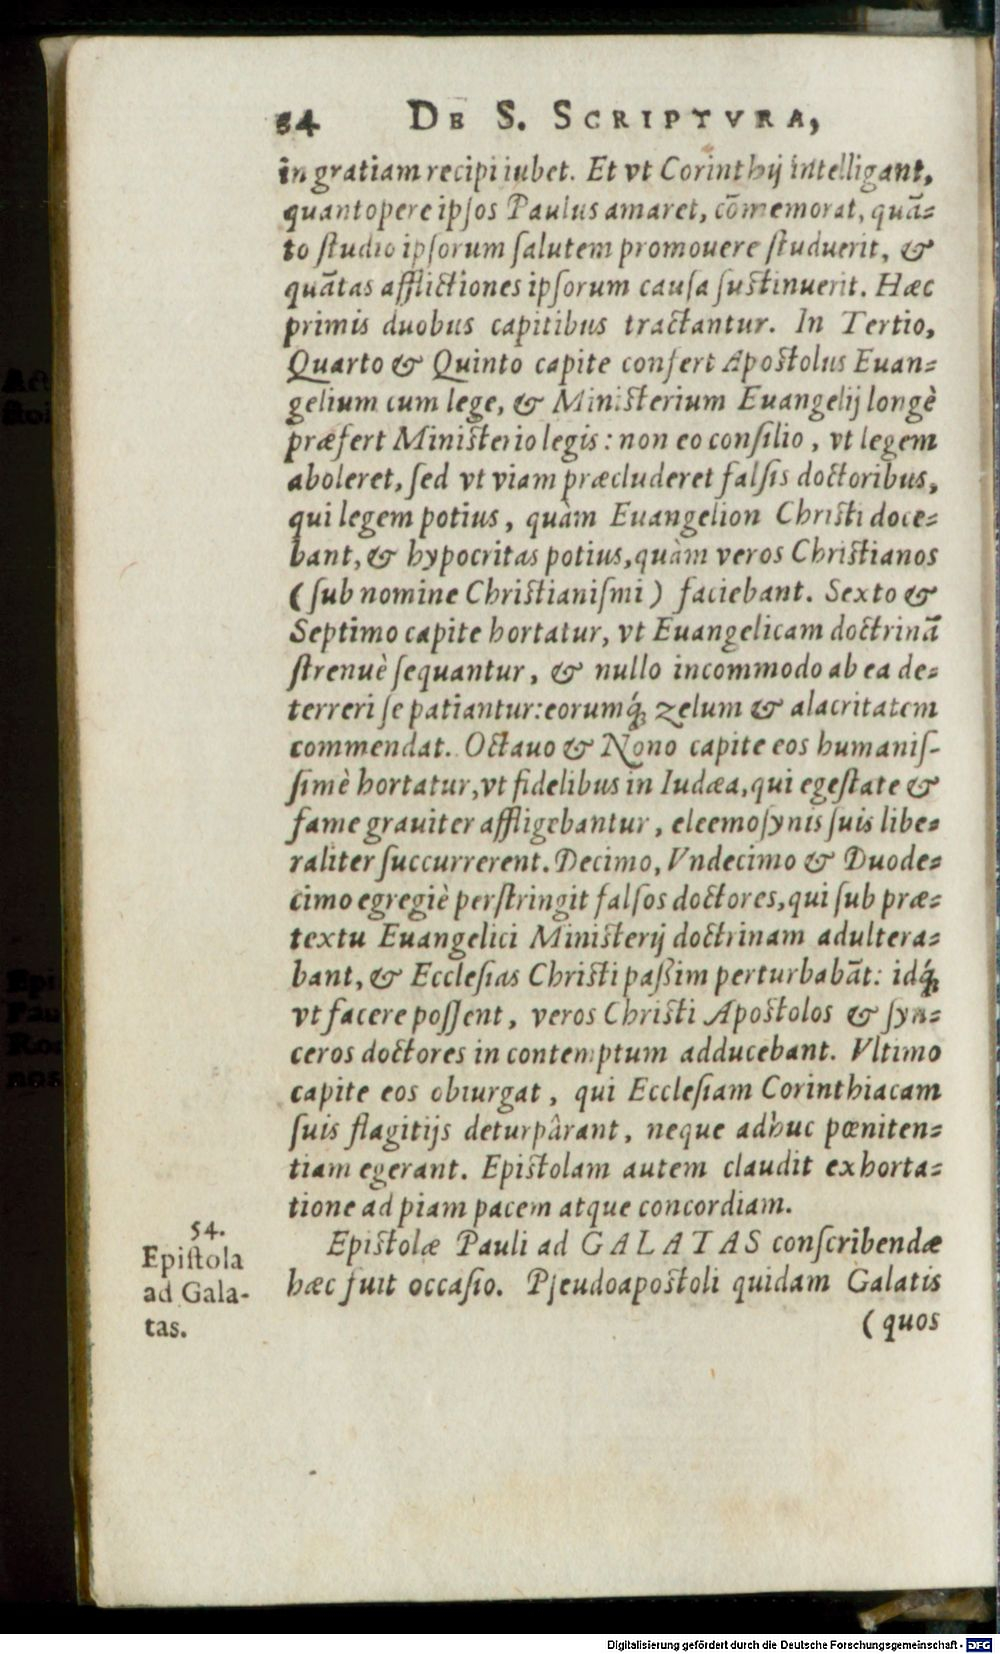 84 DE S. SCRIPTVRA,
in gratiam recipi iubet. Et vt Corinthij intelligant,
quantopere ipſos Paulus amaret, cōmemorat, quā-
to ſtudio ipſorum ſalutem promouere ſtuduerit, &
quātas afflictiones ipſorum cauſa ſustinuerit. Hæc
primis duobus capitibus tractantur. In Tertio,
Quarto & Quinto capite confert Apostolus Euan-
gelium cum lege, & Ministerium Euangelij longè
præfert Ministerio legis: non eo conſilio, vt legem
aboleret, ſed vt viam præcluderet falſis doctoribus,
qui legem potius, quàm Euangelion Christi doce-
bant, & hypocritas potius, quàm veros Christianos
(ſub nomine Christianiſmi) faciebant. Sexto &
Septimo capite hortatur, vt Euangelicam doctrinā
ſtrenuè ſequantur, & nullo incommodo ab ea de-
terreri ſe patiantur: eorumq́; zelum & alacritatem
commendat. Octauo & Nono capite eos humaniſ-
ſimè hortatur, vt fidelibus in Iudæa, qui egeſtate &
fame grauiter affligebantur, eleemoſynis ſuis libe-
raliter ſuccurrerent. Decimo, Vndecimo & Duode-
cimo egregiè perſtringit falſos doctores, qui ſub præ-
textu Euangelici Ministerij doctrinam adultera-
bant, & Eccleſias Christi paßim perturbabāt: idq́;
vt facere poſſent, veros Christi Apostolos & ſyn-
ceros doctores in contemptum adducebant. Vltimo
capite eos obiurgat, qui Eccleſiam Corinthiacam
ſuis flagitijs deturpârant, neque adhuc pœniten-
tiam egerant. Epistolam autem claudit exhorta-
tione ad piam pacem atque concordiam.
54.
Epiſtola
ad Gala-
tas.
Epistolæ Pauli ad GALATAS conſcribendæ
hæc fuit occaſio. Pſeudoapostoli quidam Galatis
(quos
Digitalisierung gefördert durch die Deutsche Forschungsgemeinschaft - DFG